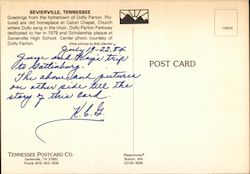 SEVIERVILLE, TENNESSEE
Greetings from the hometown of Dolly Parton. Pic-
tured are old homeplace at Caton Chapel, Church
where Dolly sang in the choir, Dolly Parton Parkway
dedicated to her in 1979 and Scholarship plaque at
Sevierville High School. Center photo courtesy of
Dolly Parton.
July 19-22, 84
June and Kay's trip
to Gatlinburg.
The above and pictures
on other side tell the
story of this card.
POST CARD
TENNESSEE POSTCARD CO.
Sevierville, TN 37862
Boston, MA